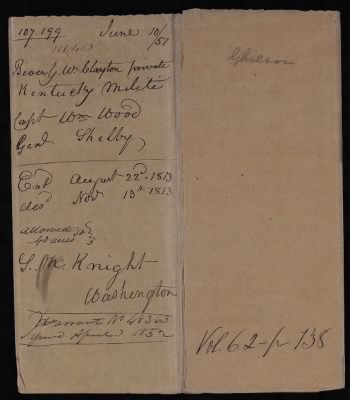 107 199 June 10/51
Beverly W. Clayton private
Kentucky Militi
Capt Wm Wood
Genl Shelby
Entd August 22d. 1813
disd Novr 13th 1813
allowed
40 acres
S. M. Knight
Washington
Warrant No 48363
April 1852
Vol. 62-p 138